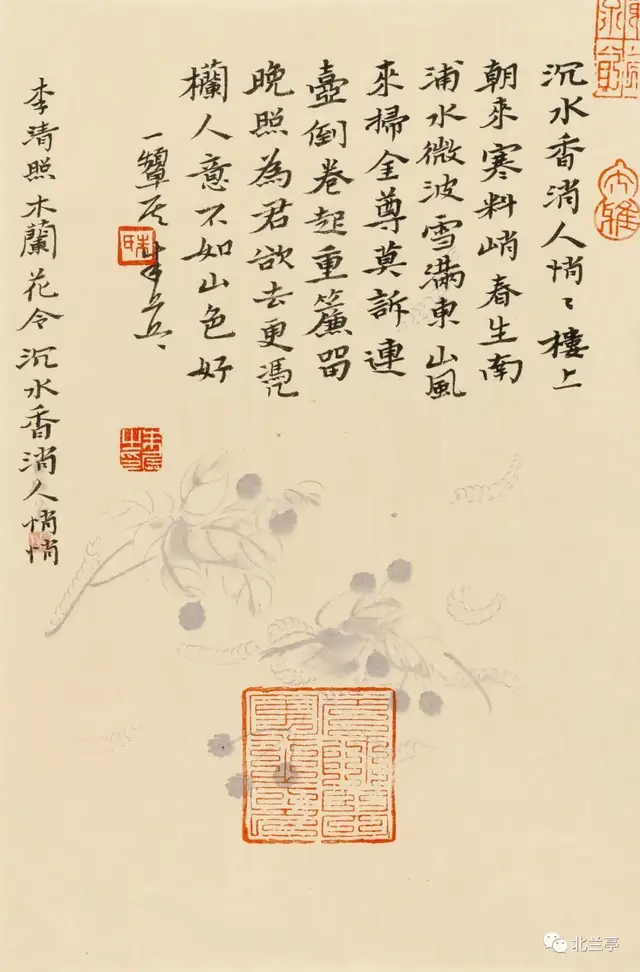 沉水香消人悄〻樓上
朝來寒料峭春生南
浦水微波雪滿東山風
來掃金尊莫訴連
壺倒卷起重簾留
晚照為君欲去更憑
欄人意不如山色好
李清照木蘭花令沉水香消人悄悄
北兰亭